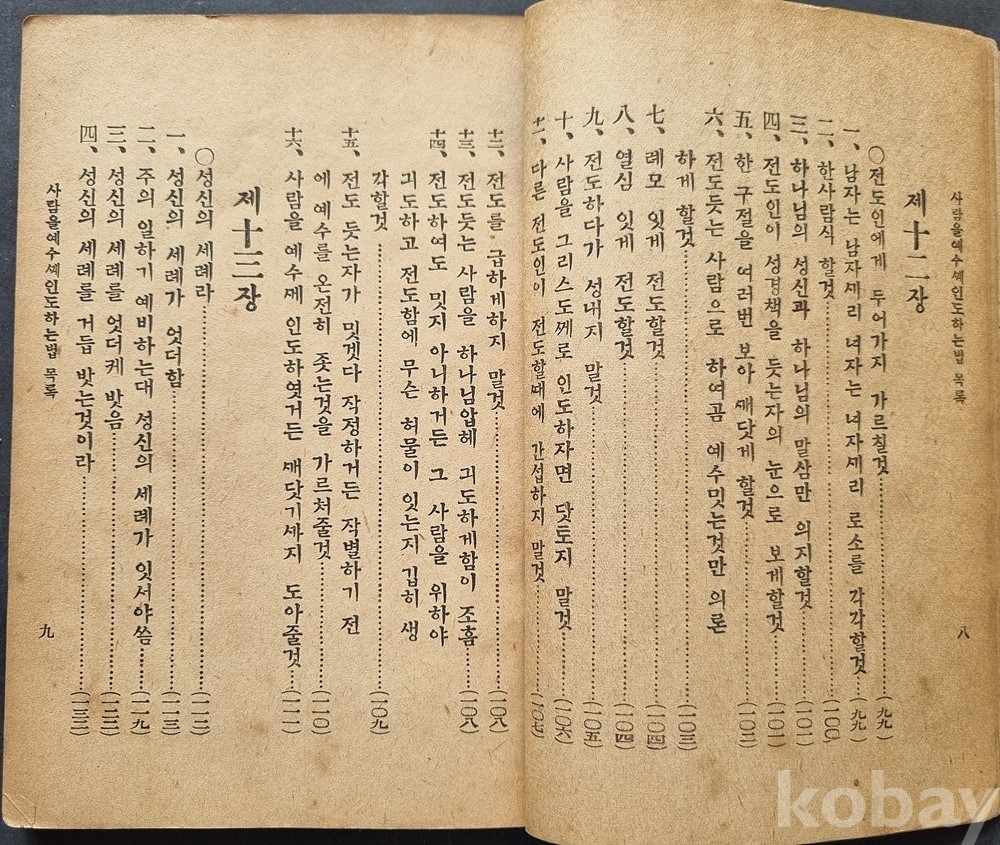 사람을예수ᄭᅦ인도하는법 목록
八
제十二장
○전도인에게 두어가지 가르칠것……(九九)
一、남자는 남자ᄭᅵ리 녀자는 녀자ᄭᅵ리 로소를 각각할것……(九九)
二、한사람식 할것……(一〇〇)
三、하나님의 성신과 하나님의 말삼만 의지할것……(一〇一)
四、전도인이 성경책을 듯는자의 눈으로 보게할것……(一〇一)
五、한 구절을 여러번 보아 ᄭᅢ닷게 할것……(一〇二)
六、전도듯는 사람으로 하여곰 예수밋는것만 의론
하게 할것……(一〇三)
七、례모 잇게 전도할것……(一〇四)
八、열심 잇게 전도할것……(一〇四)
九、전도하다가 성내지 말것……(一〇五)
十、사람을 그리스도ᄭᅦ로 인도하자면 닷토지 말것……(一〇六)
十一、다른 전도인이 전도할ᄯᅢ에 간섭하지 말것……(一〇七)
十二、전도를 급하게하지 말것……(一〇八)
十三、전도듯는 사람을 하나님압헤 긔도하게함이 조흠……(一〇八)
十四、전도하여도 밋지 아니하거든 그 사람을 위하야
긔도하고 전도함에 무슨 허물이 잇는지 깁히 생
각할것……(一〇九)
十五、전도 듯는자가 밋겟다 작정하거든 작별하기 전
에 예수를 온전히 좃는것을 가르처줄것……(一一〇)
十六、사람을 예수ᄭᅦ 인도하엿거든 ᄭᅢ닷기ᄭᅡ지 도아줄것……(一一一)
제十三장
○성신의 세례라……(一一二)
一、성신의 세례가 엇더함……(一一三)
二、주의 일하기 예비하는대 성신의 세례가 잇서야씀……(一一九)
三、성신의 세례를 엇더케 밧음……(一二三)
四、성신의 세례를 거듭 밧는것이라……(一三三)
사람을예수ᄭᅦ인도하는법 목록
九
kobay